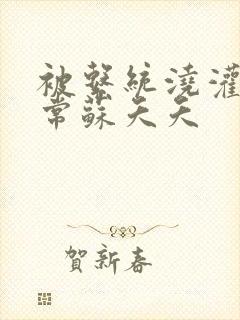 被繫統澆灌
常蘇天天
賀新春